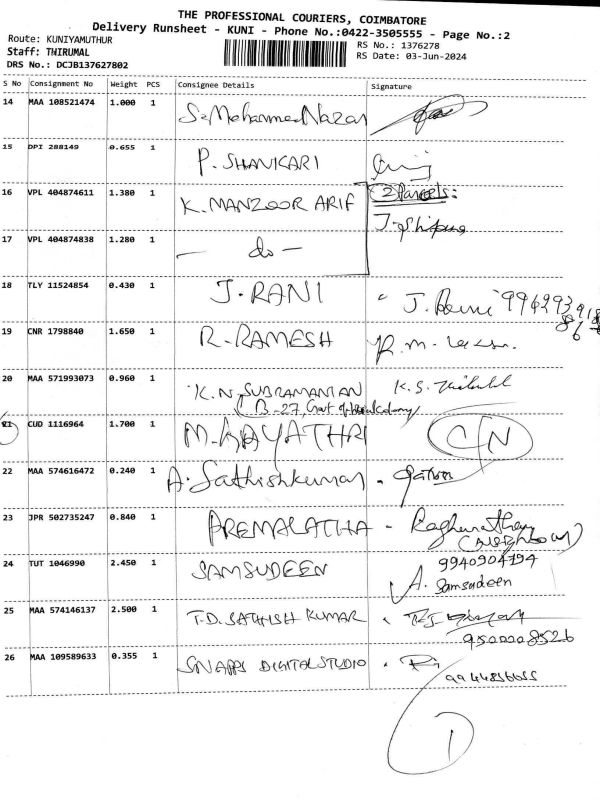 THE PROFESSIONAL COURIERS, COIMBATORE
Delivery Runsheet - KUNI - Phone No.:0422-3505555 - Page No.:2
Route: KUNIYAMUTHUR
Staff: THIRUMAL
DRS No.: DCJB137627802
RS No.: 1376278
RS Date: 03-Jun-2024
S No Consignment No Weight PCS Consignee Details Signature
14 MAA 108521474 1.000 1 S. Mohammed Nazar
15 DPI 288149 0.655 1 P. SHANKARI
16 VPL 404874611 1.380 1 K. MANZOOR ARIF 2 Parcels:
17 VPL 404874838 1.280 1 — do —
18 TLY 11524854 0.430 1 J. RANI J. Rani
19 CNR 1798840 1.650 1 R. RAMESH R. M.
20 MAA 571993073 0.960 1 K.N. SUBRAMANIAN K. S.
B-27, Govt
21 CUD 1116964 1.700 1 M. GAYATHRI C/N
22 MAA 574616472 0.240 1 A. Sathishkumar
23 JPR 502735247 0.840 1 PREMALATHA - Raghunathan
(Neighbour)
24 TUT 1046990 2.450 1 SAMSUDEEN 9940904794
A. Samsudeen
25 MAA 574146137 2.500 1 T.D. SATHISH KUMAR
9500008526
26 MAA 109589633 0.355 1 SNAPPS DIGITAL STUDIO
9944856655
1